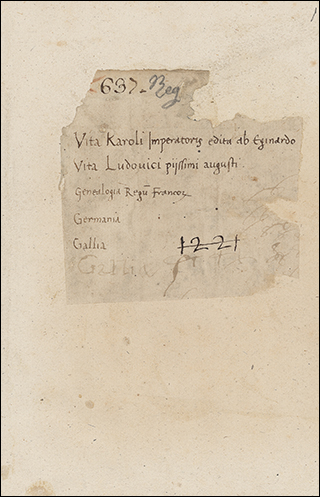 637. Reg
Vita Karoli Imperatoris edita ab Eginardo
Vita Ludouici pijssimi augusti.
Genealogia Regū Francoꝝ
Germania
Gallia 1221